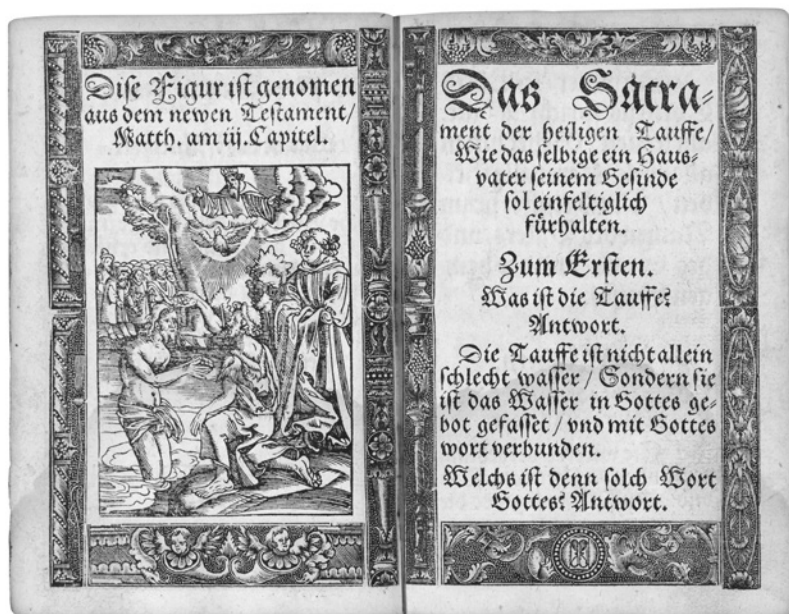 Dise Figur ist genomen
aus dem newen Testament/
Matth. am iij. Capitel.
Das Sacra⸗
ment der heiligen Tauffe/
Wie das selbige ein Haus⸗
vater seinem Gesinde
sol einfeltiglich
fürhalten.
Zum Ersten.
Was ist die Tauffe?
Antwort.
Die Tauffe ist nicht allein
schlecht wasser/ Sondern sie
ist das Wasser in Gottes ge⸗
bot gefasset/ vnd mit Gottes
wort verbunden.
Welchs ist denn solch Wort
Gottes? Antwort.